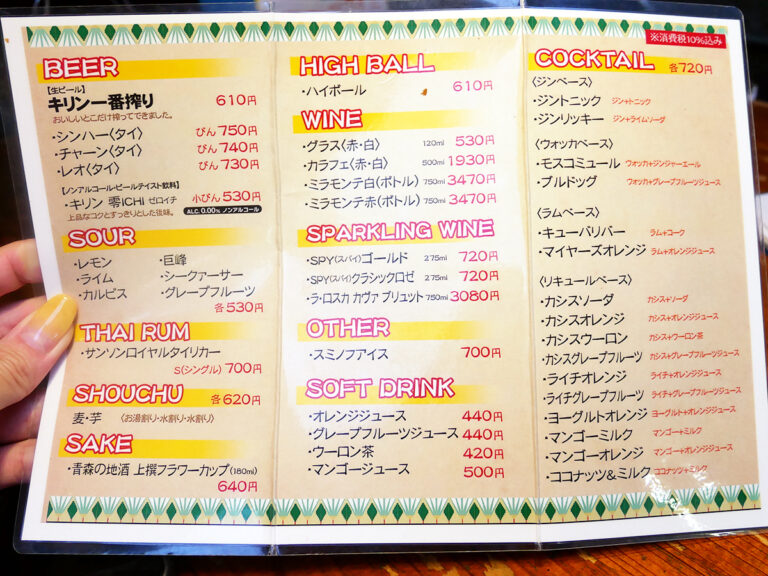 ※消費税10%込み
BEER
【生ビール】
キリン一番搾り 610円
おいしいとこだけ搾ってできました。
・シンハー〈タイ〉 びん 750円
・チャーン〈タイ〉 びん 740円
・レオ〈タイ〉 びん 730円
【ノンアルコール・ビールテイスト飲料】
・キリン 零ICHI ゼロイチ 小びん 530円
上品なコクとすっきりとした後味。 ALC. 0.00% ノンアルコール
SOUR
・レモン ・巨峰
・ライム ・シークァーサー
・カルピス ・グレープフルーツ
各530円
THAI RUM
・サンソンロイヤルタイリカー
S(シングル) 700円
SHOUCHU 各620円
麦・芋 〈お湯割り・水割り・水割り〉
SAKE
・青森の地酒 上撰フラワーカップ(180ml)
640円
HIGH BALL
・ハイボール 610円
WINE
・グラス〈赤・白〉 120ml 530円
・カラフェ〈赤・白〉 500ml 1930円
・ミラモンテ白〈ボトル〉 750ml 3470円
・ミラモンテ赤〈ボトル〉 750ml 3470円
SPARKLING WINE
・SPY(スパイ)ゴールド 275ml 720円
・SPY(スパイ)クラシックロゼ 275ml 720円
・ラ・ロスカ カヴァ ブリュット 750ml 3080円
OTHER
・スミノフアイス 700円
SOFT DRINK
・オレンジジュース 440円
・グレープフルーツジュース 440円
・ウーロン茶 420円
・マンゴージュース 500円
COCKTAIL 各720円
〈ジンベース〉
・ジントニック ジン+トニック
・ジンリッキー ジン+ライムソーダ
〈ウォッカベース〉
・モスコミュール ウォッカ+ジンジャーエール
・ブルドッグ ウォッカ+グレープフルーツジュース
〈ラムベース〉
・キューバリバー ラム+コーク
・マイヤーズオレンジ ラム+オレンジジュース
〈リキュールベース〉
・カシスソーダ カシス+ソーダ
・カシスオレンジ カシス+オレンジジュース
・カシスウーロン カシス+ウーロン茶
・カシスグレープフルーツ カシス+グレープフルーツジュース
・ライチオレンジ ライチ+オレンジジュース
・ライチグレープフルーツ ライチ+グレープフルーツジュース
・ヨーグルトオレンジ ヨーグルト+オレンジジュース
・マンゴーミルク マンゴー+ミルク
・マンゴーオレンジ マンゴー+オレンジジュース
・ココナッツ&ミルク ココナッツ+ミルク